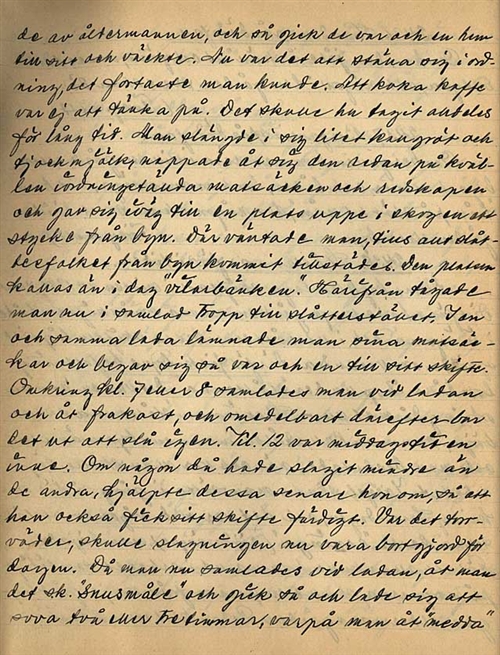 de av åldermannen, och så gick de var och en hem
till sitt och väckte. Nu var det att ställa sig i ord-
ning, det fortaste man kunde. Att koka kaffe
var ej att tänka på. Det skulle ha tagit alldeles
för lång tid. Man slängde i sig litet kall gröt och
tjockmjölk, nappade åt sig den redan på kväl-
len iordningställda matsäcken och redskapen
och gav sig iväg till en plats uppe i skogen ett
stycke från byn. Där väntade man, tills allt slåt-
terfolket från byn kommit tillstädes. Den platsen
kallas än i dag "Vilarbänken." Härifrån tågade
man nu i samlad tropp till slåtterstället. I en
och samma lada lämnade man sina matsäc-
kar och begav sig så var och en till sitt skifte.
Omkring kl. 7 eller 8 samlades man vid ladan
och åt frukost, och omedelbart därefter bar
det ut att slå igen. Kl. 12 var middagstiden
inne. Om någon då hade slagit mindre än
de andra, hjälpte dessa senare honom, så att
han också fick sitt skifte färdigt. Var det torr-
väder, skulle slagningen nu vara bortgjord för
dagen. Då man nu samlades vid ladan, åt man
det sk. "Snusmåle" och gick så och lade sig att
sova två eller tre timmar, varpå man åt "medda"